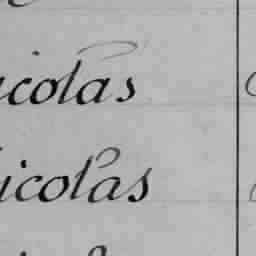 icolas
icolas